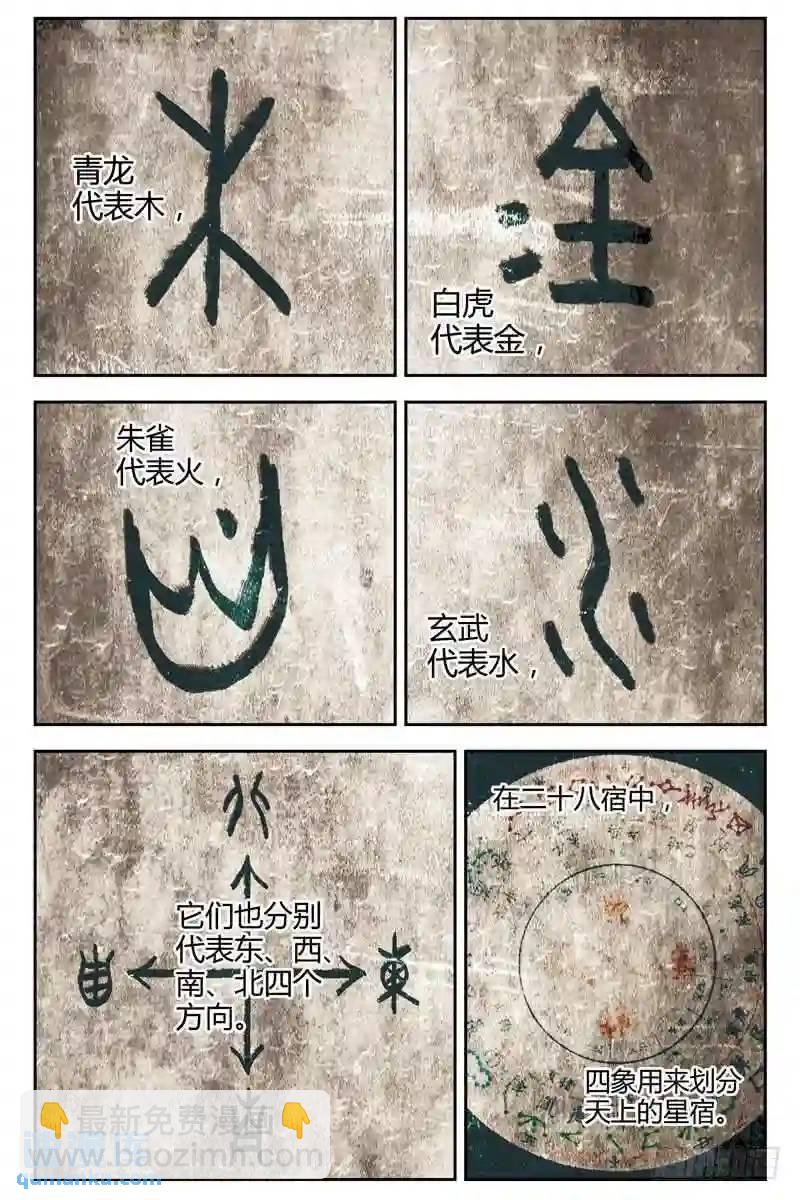 青龙
代表木，
白虎
代表金，
朱雀
代表火，
玄武
代表水，
它们也分别
代表东、西、
南、北四个
方向。
在二十八宿中，
四象用来划分
天上的星宿。
👇最新免费漫画👇
www.baozimh.com
qumanku.com